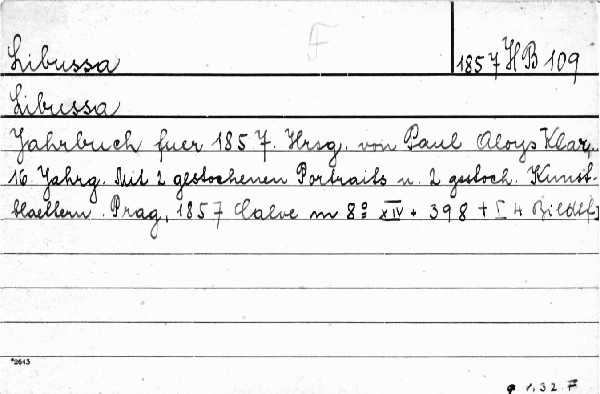 F
Libussa 1857 H B 109
Libussa
Jahrbuch fuer 1857. Hrsg. von Paul Aloys Klar.
16. Jahrg. Mit 2 gestochenen Portraits u. 2 gestoch. Kunst-
blaettern. Prag, 1857 Calve m 8° XIV + 398 +
*2613